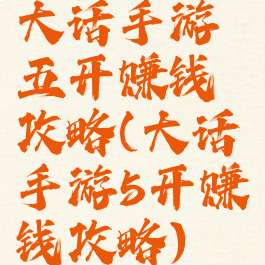 大话手游
五开赚钱
攻略(大话
手游5开赚
钱攻略)